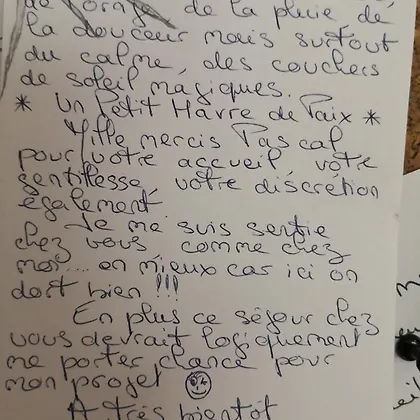 de l'orage, de la pluie, de
la douceur mais surtout
du calme, des couchers
de soleil magiques.
* Un Petit Havre de Paix *
Mille mercis Pascal
pour votre accueil, votre
gentillesse, votre discretion
également.
Je me suis sentie
chez vous comme chez
moi.... en mieux car ici on
dort bien !!!
En plus ce séjour chez
vous devrait logiquement
me porter chance pour
mon projet
A très bientôt